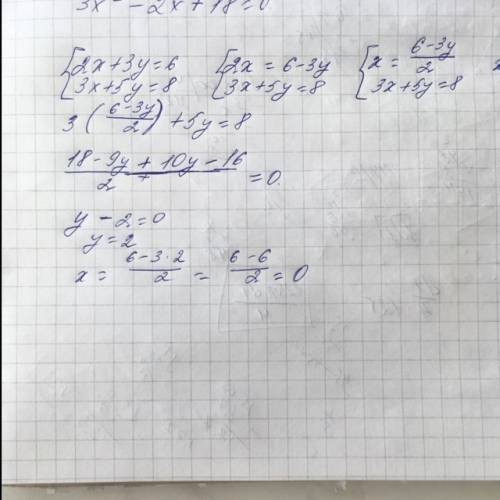 3x² - 2x + 18 = 0
{2x + 3y = 6 {2x = 6 - 3y {x = (6 - 3y)/2
{3x + 5y = 8 {3x + 5y = 8 {3x + 5y = 8
3((6 - 3y)/2) + 5y = 8
(18 - 9y + 10y - 16)/2 = 0.
y - 2 = 0
y = 2
x = (6 - 3·2)/2 = (6 - 6)/2 = 0